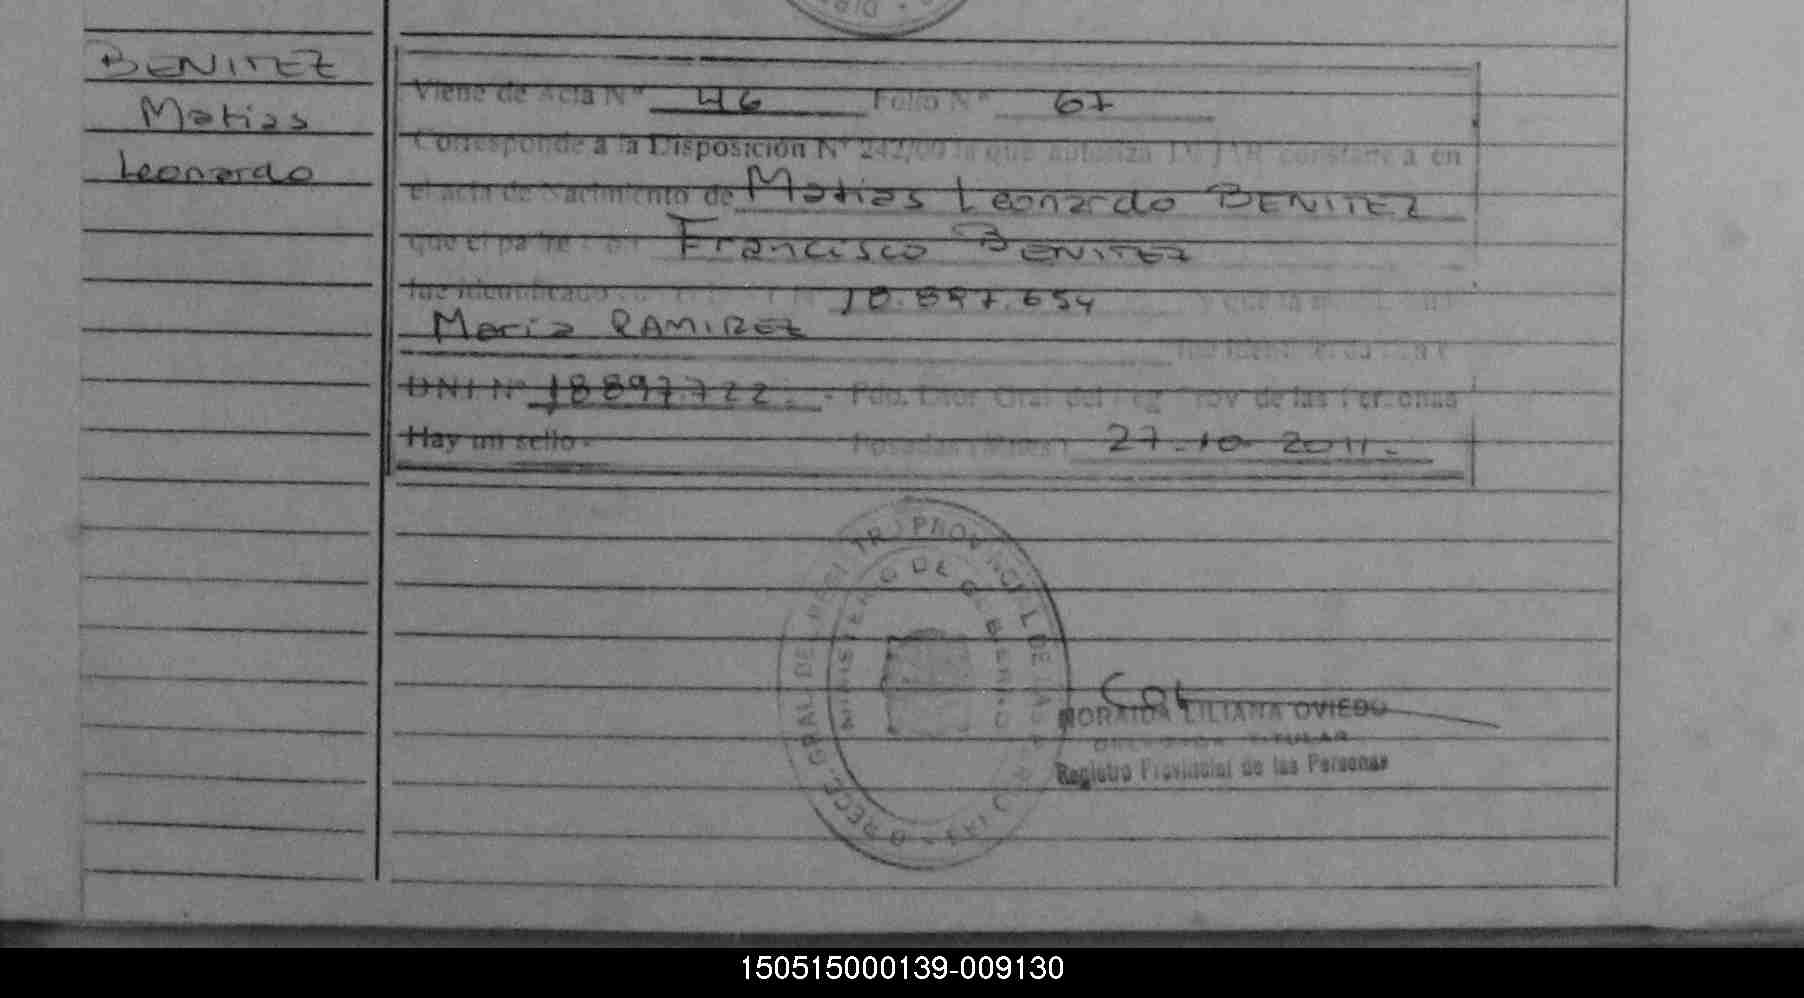 BENITEZ
Matias
Leonardo
Viene de Acta N° 46 Folio N° 67
Corresponde a la Disposición N° 242/00 la que autoriza constancia en
el acta de Nacimiento de Matias Leonardo BENITEZ
que el padre Don Francisco BENITEZ
fue identificado 18.897.654 y que la
Maria RAMIREZ
fue identificada
DNI N° 18897.722.- Fdo. Dtor Gral del Reg Prov de las Personas
Hay un sello- Posadas 27-10-2011-
MINISTERIO DE GOBIERNO
LILIANA OVIEDO
TITULAR
Registro Provincial de las Personas
150515000139-009130